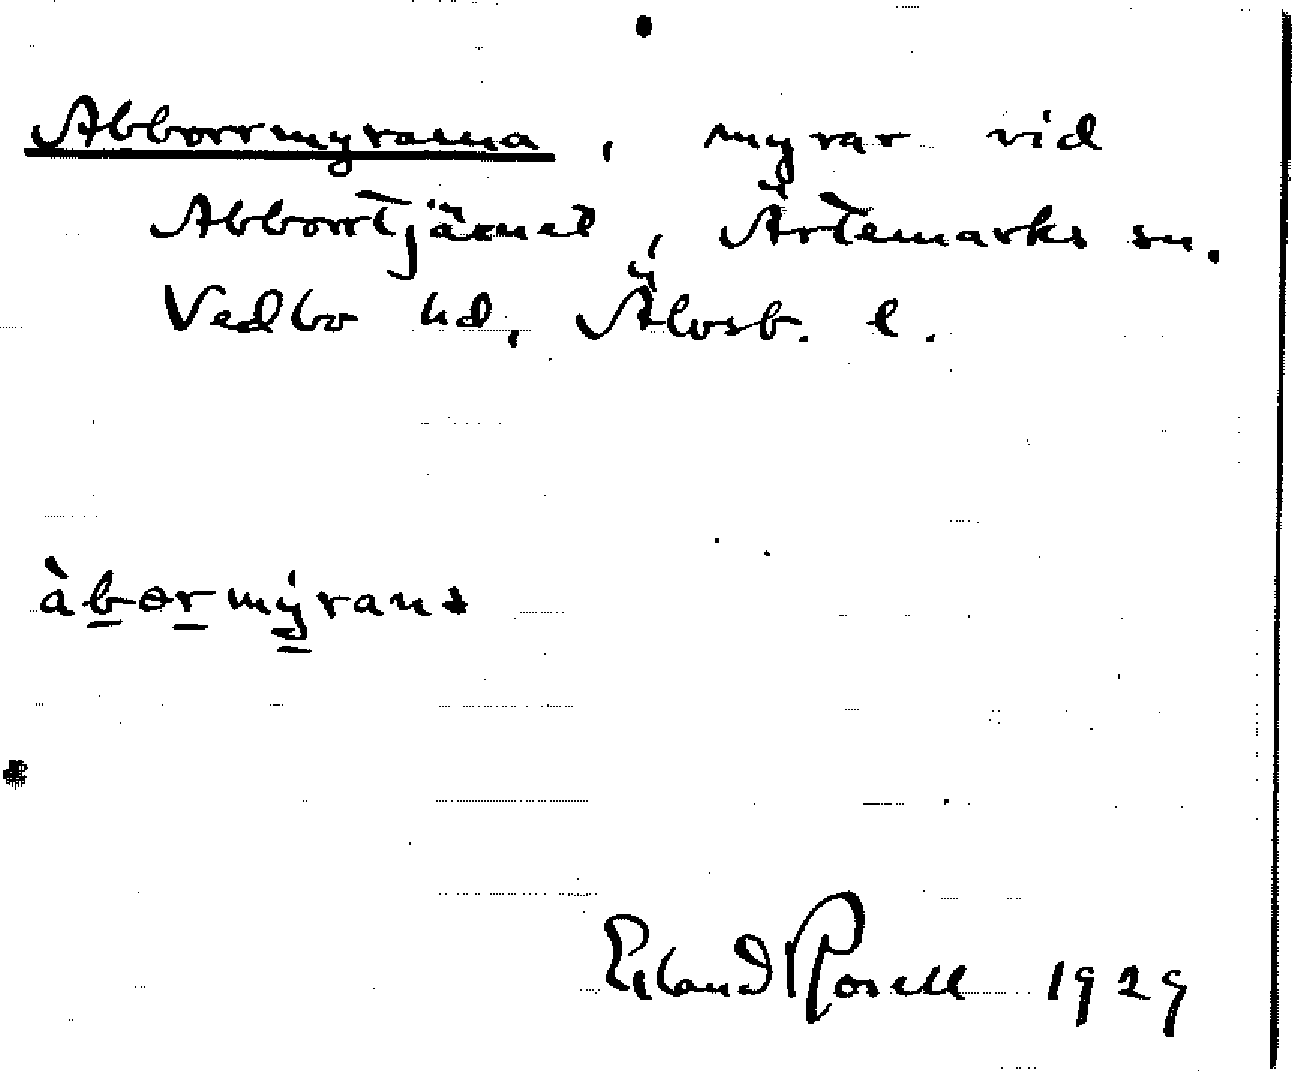 Abborrmyrarna, myrar vid
Abborrtjärnet, Ärtemarks sn.
Vedbo hd, Älvsb. l.
àbərmýrana
Erland Rosell 1929